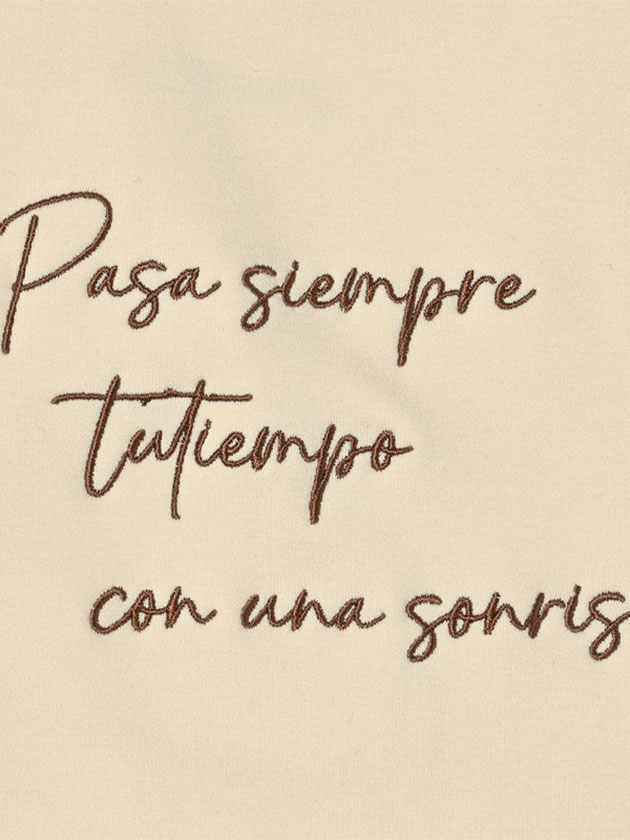 Pasa siempre
tutiempo
con una sonris